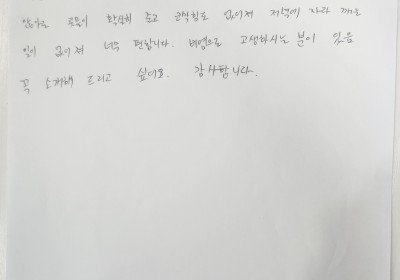 콧물이 확실히 줄고 코막힘도 없어져 저녁에 자다 깨는
일이 없어져 너무 편합니다. 비염으로 고생하시는 분이 있음
꼭 소개해 드리고 싶어요. 감사합니다.